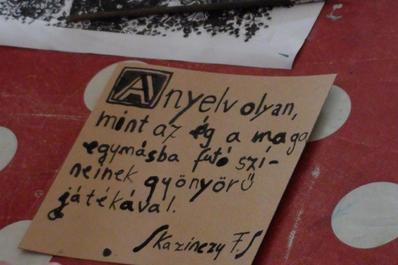 A nyelv olyan,
mint az ég a maga
egymásba futó szí-
neinek gyönyörű
játékával.
Skazinczy F.S